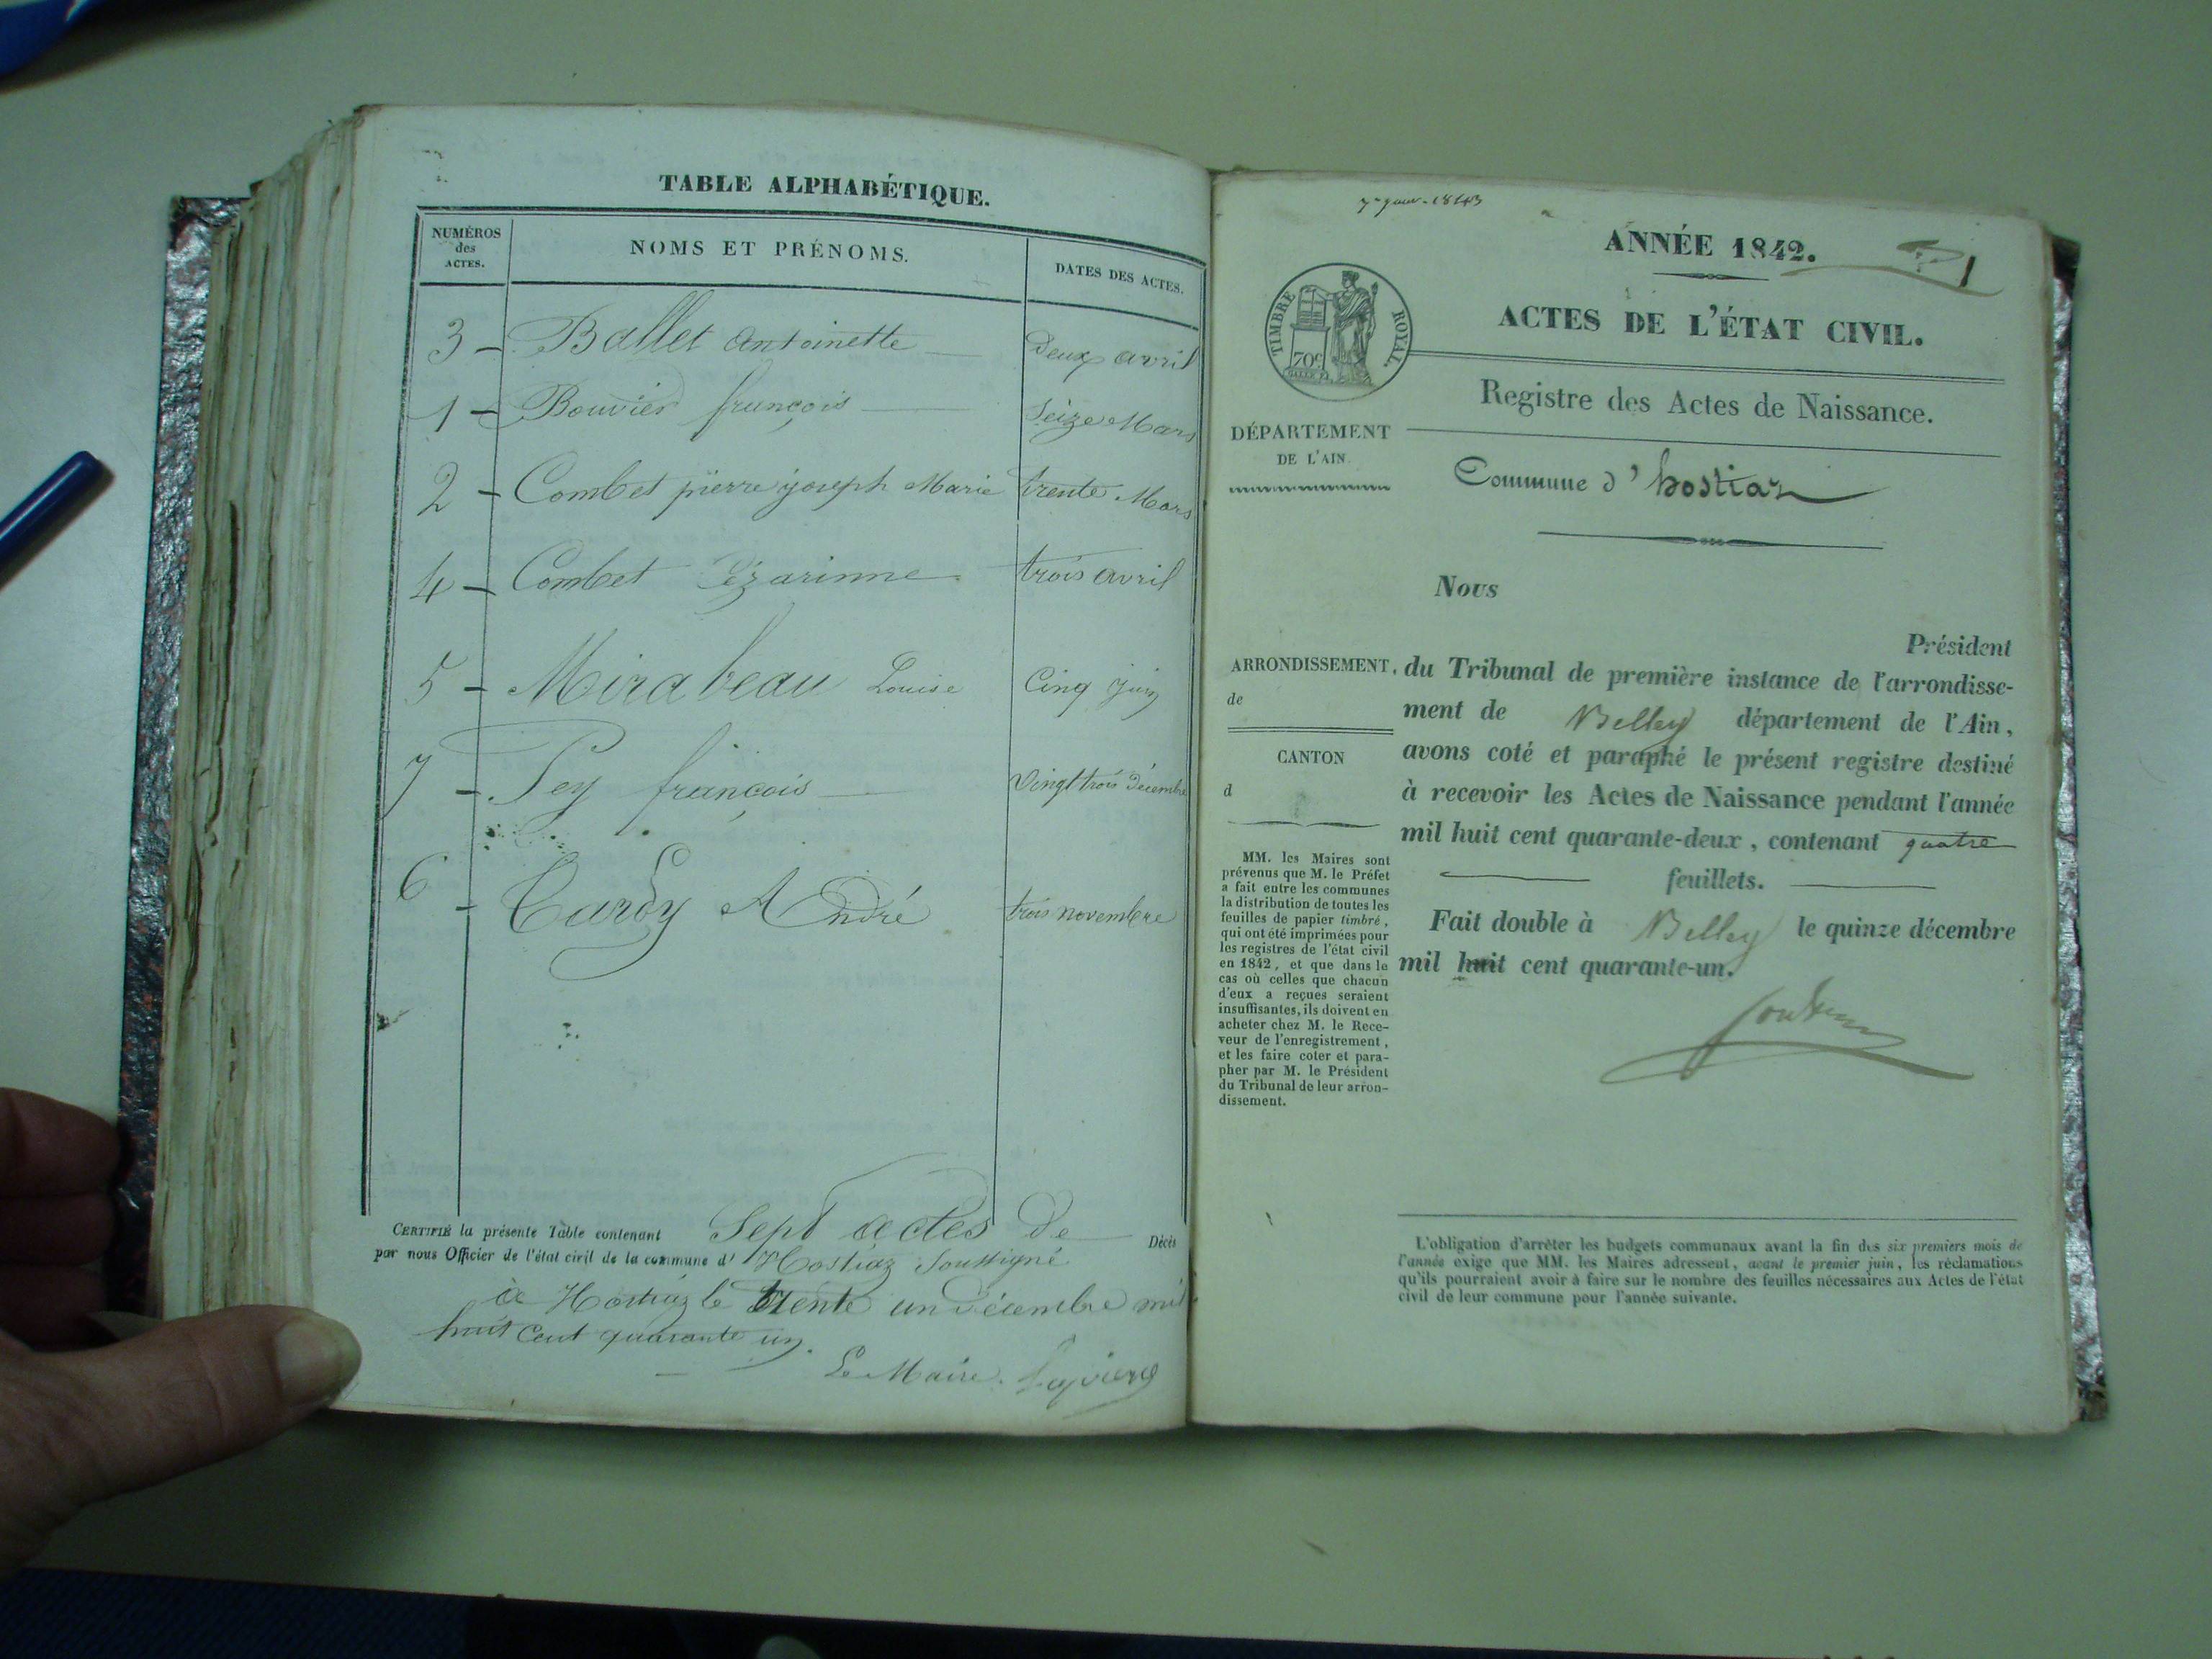 TABLE ALPHABÉTIQUE.
NUMÉROS des ACTES.
NOMS ET PRÉNOMS.
DATES DES ACTES.
3 - Ballet Antoinette deux avril
1 - Bouvier françois Seize Mars
2 - Combet pierre joseph Marie trente Mars
4 - Combet Cézarinne trois avril
5 - Mirabeau Louise Cinq juin
7 - Pey françois Vingt trois Décembre
6 - Tardy André trois novembre
CERTIFIÉ la présente Table contenant Sept actes de Décès
par nous Officier de l'état civil de la commune d' Hostiaz Soussigné
à Hostiaz le trente un Décembre mil
huit Cent quarante un.
Le Maire.
7 janv. 1843
ANNÉE 1842.
1
TIMBRE ROYAL.
70c
ACTES DE L'ÉTAT CIVIL.
Registre des Actes de Naissance.
DÉPARTEMENT
DE L'AIN.
Commune d'hostiaz
Nous
Président
ARRONDISSEMENT.
de
CANTON
d
du Tribunal de première instance de l'arrondisse-
ment de Belley département de l'Ain,
avons coté et paraphé le présent registre destiné
à recevoir les Actes de Naissance pendant l'année
mil huit cent quarante-deux, contenant quatre
feuillets.
Fait double à Belley le quinze décembre
mil huit cent quarante-un.
MM. les Maires sont
prévenus que M. le Préfet
a fait entre les communes
la distribution de toutes les
feuilles de papier timbré,
qui ont été imprimées pour
les registres de l'état civil
en 1842, et que dans le
cas où celles que chacun
d'eux a reçues seraient
insuffisantes, ils doivent en
acheter chez M. le Rece-
veur de l'enregistrement,
et les faire coter et para-
pher par M. le Président
du Tribunal de leur arron-
dissement.
L'obligation d'arrêter les budgets communaux avant la fin des six premiers mois de
l'année exige que MM. les Maires adressent, avant le premier juin, les réclamations
qu'ils pourraient avoir à faire sur le nombre des feuilles nécessaires aux Actes de l'état
civil de leur commune pour l'année suivante.